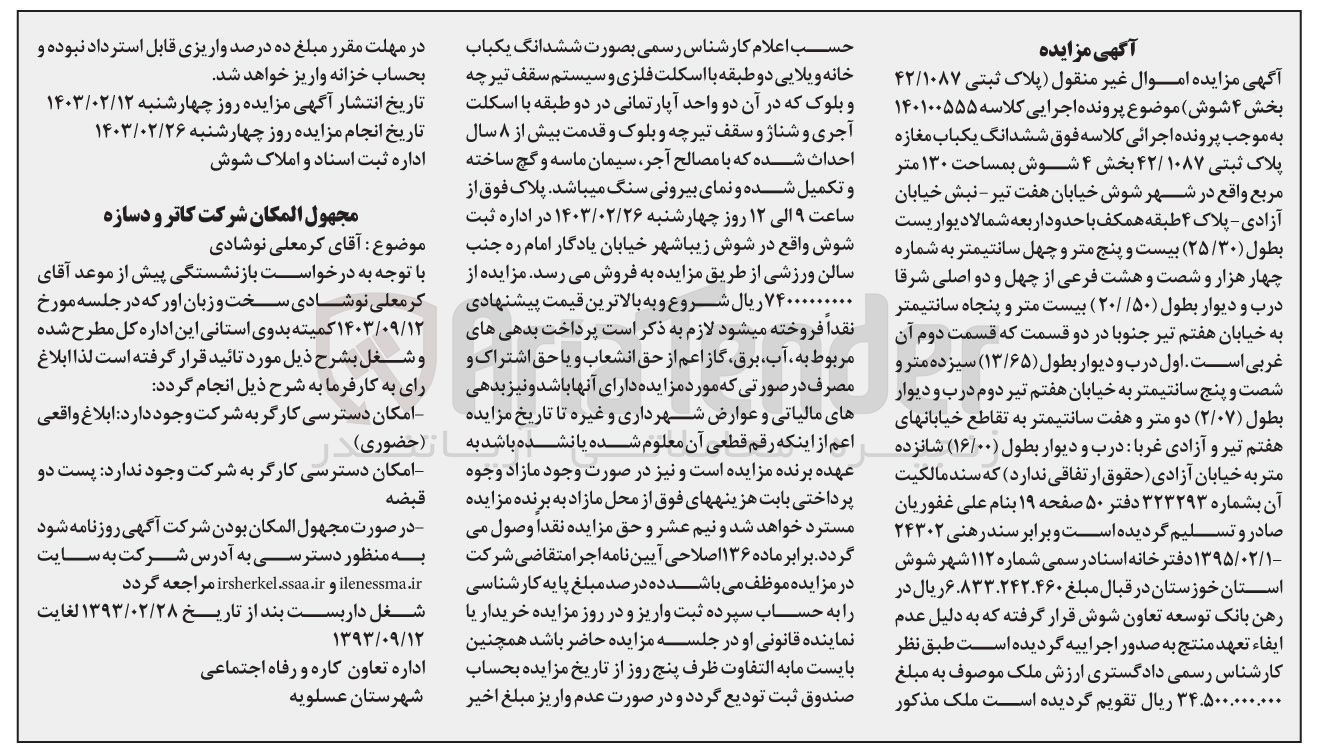 آگهی مزایده
آگهی مزایده اموال غیر منقول (پلاک ثبتی ۴۲/۱۰۸۷
بخش ۴ شوش) موضوع پرونده اجرایی کلاسه ۱۴۰۱۰۰۵۵۵
به موجب پرونده اجرائی کلاسه فوق ششدانگ یکباب مغازه
پلاک ثبتی ۴۲/۱۰۸۷ بخش ۴ شوش بمساحت ۱۳۰ متر
مربع واقع در شهر شوش خیابان هفت تیر – نبش خیابان
آزادی – پلاک ۴ طبقه همکف با حدود اربعه شمالا دیواریست
بطول (۲۵/۳۰) بیست و پنج متر و چهل سانتیمتر به شماره
چهار هزار و شصت و هشت فرعی از چهل و دو اصلی شرقا
درب و دیوار بطول (۲۰//۵۰) بیست متر و پنجاه سانتیمتر
به خیابان هفتم تیر جنوبا در دو قسمت که قسمت دوم آن
غربی است. اول درب و دیوار بطول (۱۳/۶۵) سیزده متر و
شصت و پنج سانتیمتر به خیابان هفتم تیر دوم درب و دیوار
بطول (۲/۰۷) دو متر و هفت سانتیمتر به تقاطع خیابانهای
هفتم تیر و آزادی غربا : درب و دیوار بطول (۱۶/۰۰) شانزده
متر به خیابان آزادی (حقوق ارتفاقی ندارد) که سند مالکیت
آن بشماره ۳۲۳۲۹۳ دفتر ۵۰ صفحه ۱۹ بنام علی غفوریان
صادر و تسلیم گردیده است و برابر سند رهنی ۲۴۳۰۲
-۱۳۹۵/۰۲/۱ دفترخانه اسناد رسمی شماره ۱۱۲ شهر شوش
استان خوزستان در قبال مبلغ ۶.۸۳۳.۲۴۲.۴۶۰ ریال در
رهن بانک توسعه تعاون شوش قرار گرفته که به دلیل عدم
ایفاء تعهد منتج به صدور اجراییه گردیده است طبق نظر
کارشناس رسمی دادگستری ارزش ملک موصوف به مبلغ
۳۴.۵۰۰.۰۰۰.۰۰۰ ریال تقویم گردیده است ملک مذکور
حسب اعلام کارشناس رسمی بصورت ششدانگ یکباب
خانه ویلایی دو طبقه با اسکلت فلزی و سیستم سقف تیرچه
و بلوک که در آن دو واحد آپارتمانی در دو طبقه با اسکلت
آجری و شناژ و سقف تیرچه و بلوک و قدمت بیش از ۸ سال
احداث شده که با مصالح آجر، سیمان ماسه و گچ ساخته
و تکمیل شده و نمای بیرونی سنگ میباشد. پلاک فوق از
ساعت ۹ الی ۱۲ روز چهارشنبه ۱۴۰۳/۰۲/۲۶ در اداره ثبت
شوش واقع در شوش زیباشهر خیابان یادگار امام ره جنب
سالن ورزشی از طریق مزایده به فروش می رسد. مزایده از
۷۴۰۰۰۰۰۰۰۰۰ ریال شروع و به بالاترین قیمت پیشنهادی
نقداً فروخته میشود لازم به ذکر است پرداخت بدهی های
مربوط به ، آب، برق، گاز اعم از حق انشعاب و یا حق اشتراک و
مصرف در صورتی که مورد مزایده دارای آنها باشد و نیز بدهی
های مالیاتی و عوارض شهرداری و غیره تا تاریخ مزایده
اعم از اینکه رقم قطعی آن معلوم شده یا نشده باشد به
عهده برنده مزایده است و نیز در صورت وجود مازاد وجوه
پرداختی بابت هزینههای فوق از محل مازاد به برنده مزایده
مسترد خواهد شد و نیم عشر و حق مزایده نقداً وصول می
گردد. برابر ماده ۱۳۶ اصلاحی آیین نامه اجرا متقاضی شرکت
در مزایده موظف می باشد ده درصد مبلغ پایه کارشناسی
را به حساب سپرده ثبت واریز و در روز مزایده خریدار یا
نماینده قانونی او در جلسه مزایده حاضر باشد همچنین
بایست مابه التفاوت ظرف پنج روز از تاریخ مزایده بحساب
صندوق ثبت تودیع گردد و در صورت عدم واریز مبلغ اخیر
در مهلت مقرر مبلغ ده درصد واریزی قابل استرداد نبوده و
بحساب خزانه واریز خواهد شد.
تاریخ انتشار آگهی مزایده روز چهارشنبه ۱۴۰۳/۰۲/۱۲
تاریخ انجام مزایده روز چهارشنبه ۱۴۰۳/۰۲/۲۶
اداره ثبت اسناد و املاک شوش
مجهول المکان شرکت کاتر و دسازه
موضوع : آقای کرمعلی نوشادی
با توجه به درخواست بازنشستگی پیش از موعد آقای
کرمعلی نوشادی سخت و زیان اور که در جلسه مورخ
۱۴۰۳/۰۹/۱۲ کمیته بدوی استانی این اداره کل مطرح شده
و شغل بشرح ذیل مورد تائید قرار گرفته است لذا ابلاغ
رای به کارفرما به شرح ذیل انجام گردد:
-امکان دسترسی کارگر به شرکت وجود دارد: ابلاغ واقعی
(حضوری)
-امکان دسترسی کارگر به شرکت وجود ندارد: پست دو
قبضه
-در صورت مجهول المکان بودن شرکت آگهی روزنامه شود
به منظور دسترسی به آدرس شرکت به سایت
ilenessma.ir و irsherkel.ssaa.ir مراجعه گردد
شغل داربست بند از تاریخ ۱۳۹۳/۰۲/۲۸ لغایت
۱۳۹۳/۰۹/۱۲
اداره تعاون کاره و رفاه اجتماعی
شهرستان عسلویه
AriaTender
زنجیره معاملاتی آریاتندر